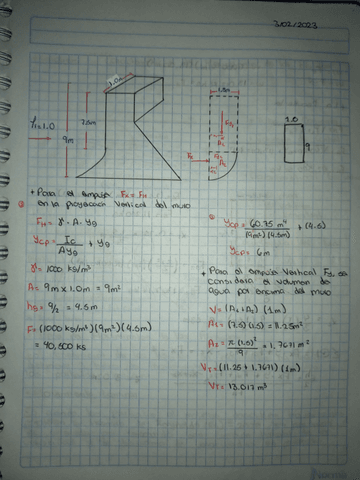 3/02/2023
1.0m
7.5m
9m
h=1.0
1.5m
Fy
A1
Fx
A2
1.0
9
* Para el empuje Fx = FH
en la proyección vertical del muro
①
FH = γ · A · yg
ycp = Ic / Ayg + yg
γ = 1000 kg/m³
A = 9m x 1.0m = 9m²
hg = 9/2 = 4.5m
F = (1000 kg/m³)(9m²)(4.5m)
= 40,500 kg
②
ycp = 60.75 m⁴ / (9m²)(4.5m) + (4.5)
ycp = 6m
* Para el empuje vertical Fy, se
considera el volumen de
agua por encima del muro
V = (A1 + A2) (1m)
A1 = (7.5)(1.5) = 11.25m²
A2 = π(1.5)² / 4 = 1.7671 m²
VT = (11.25 + 1.7671) (1m)
VT = 13.017m³